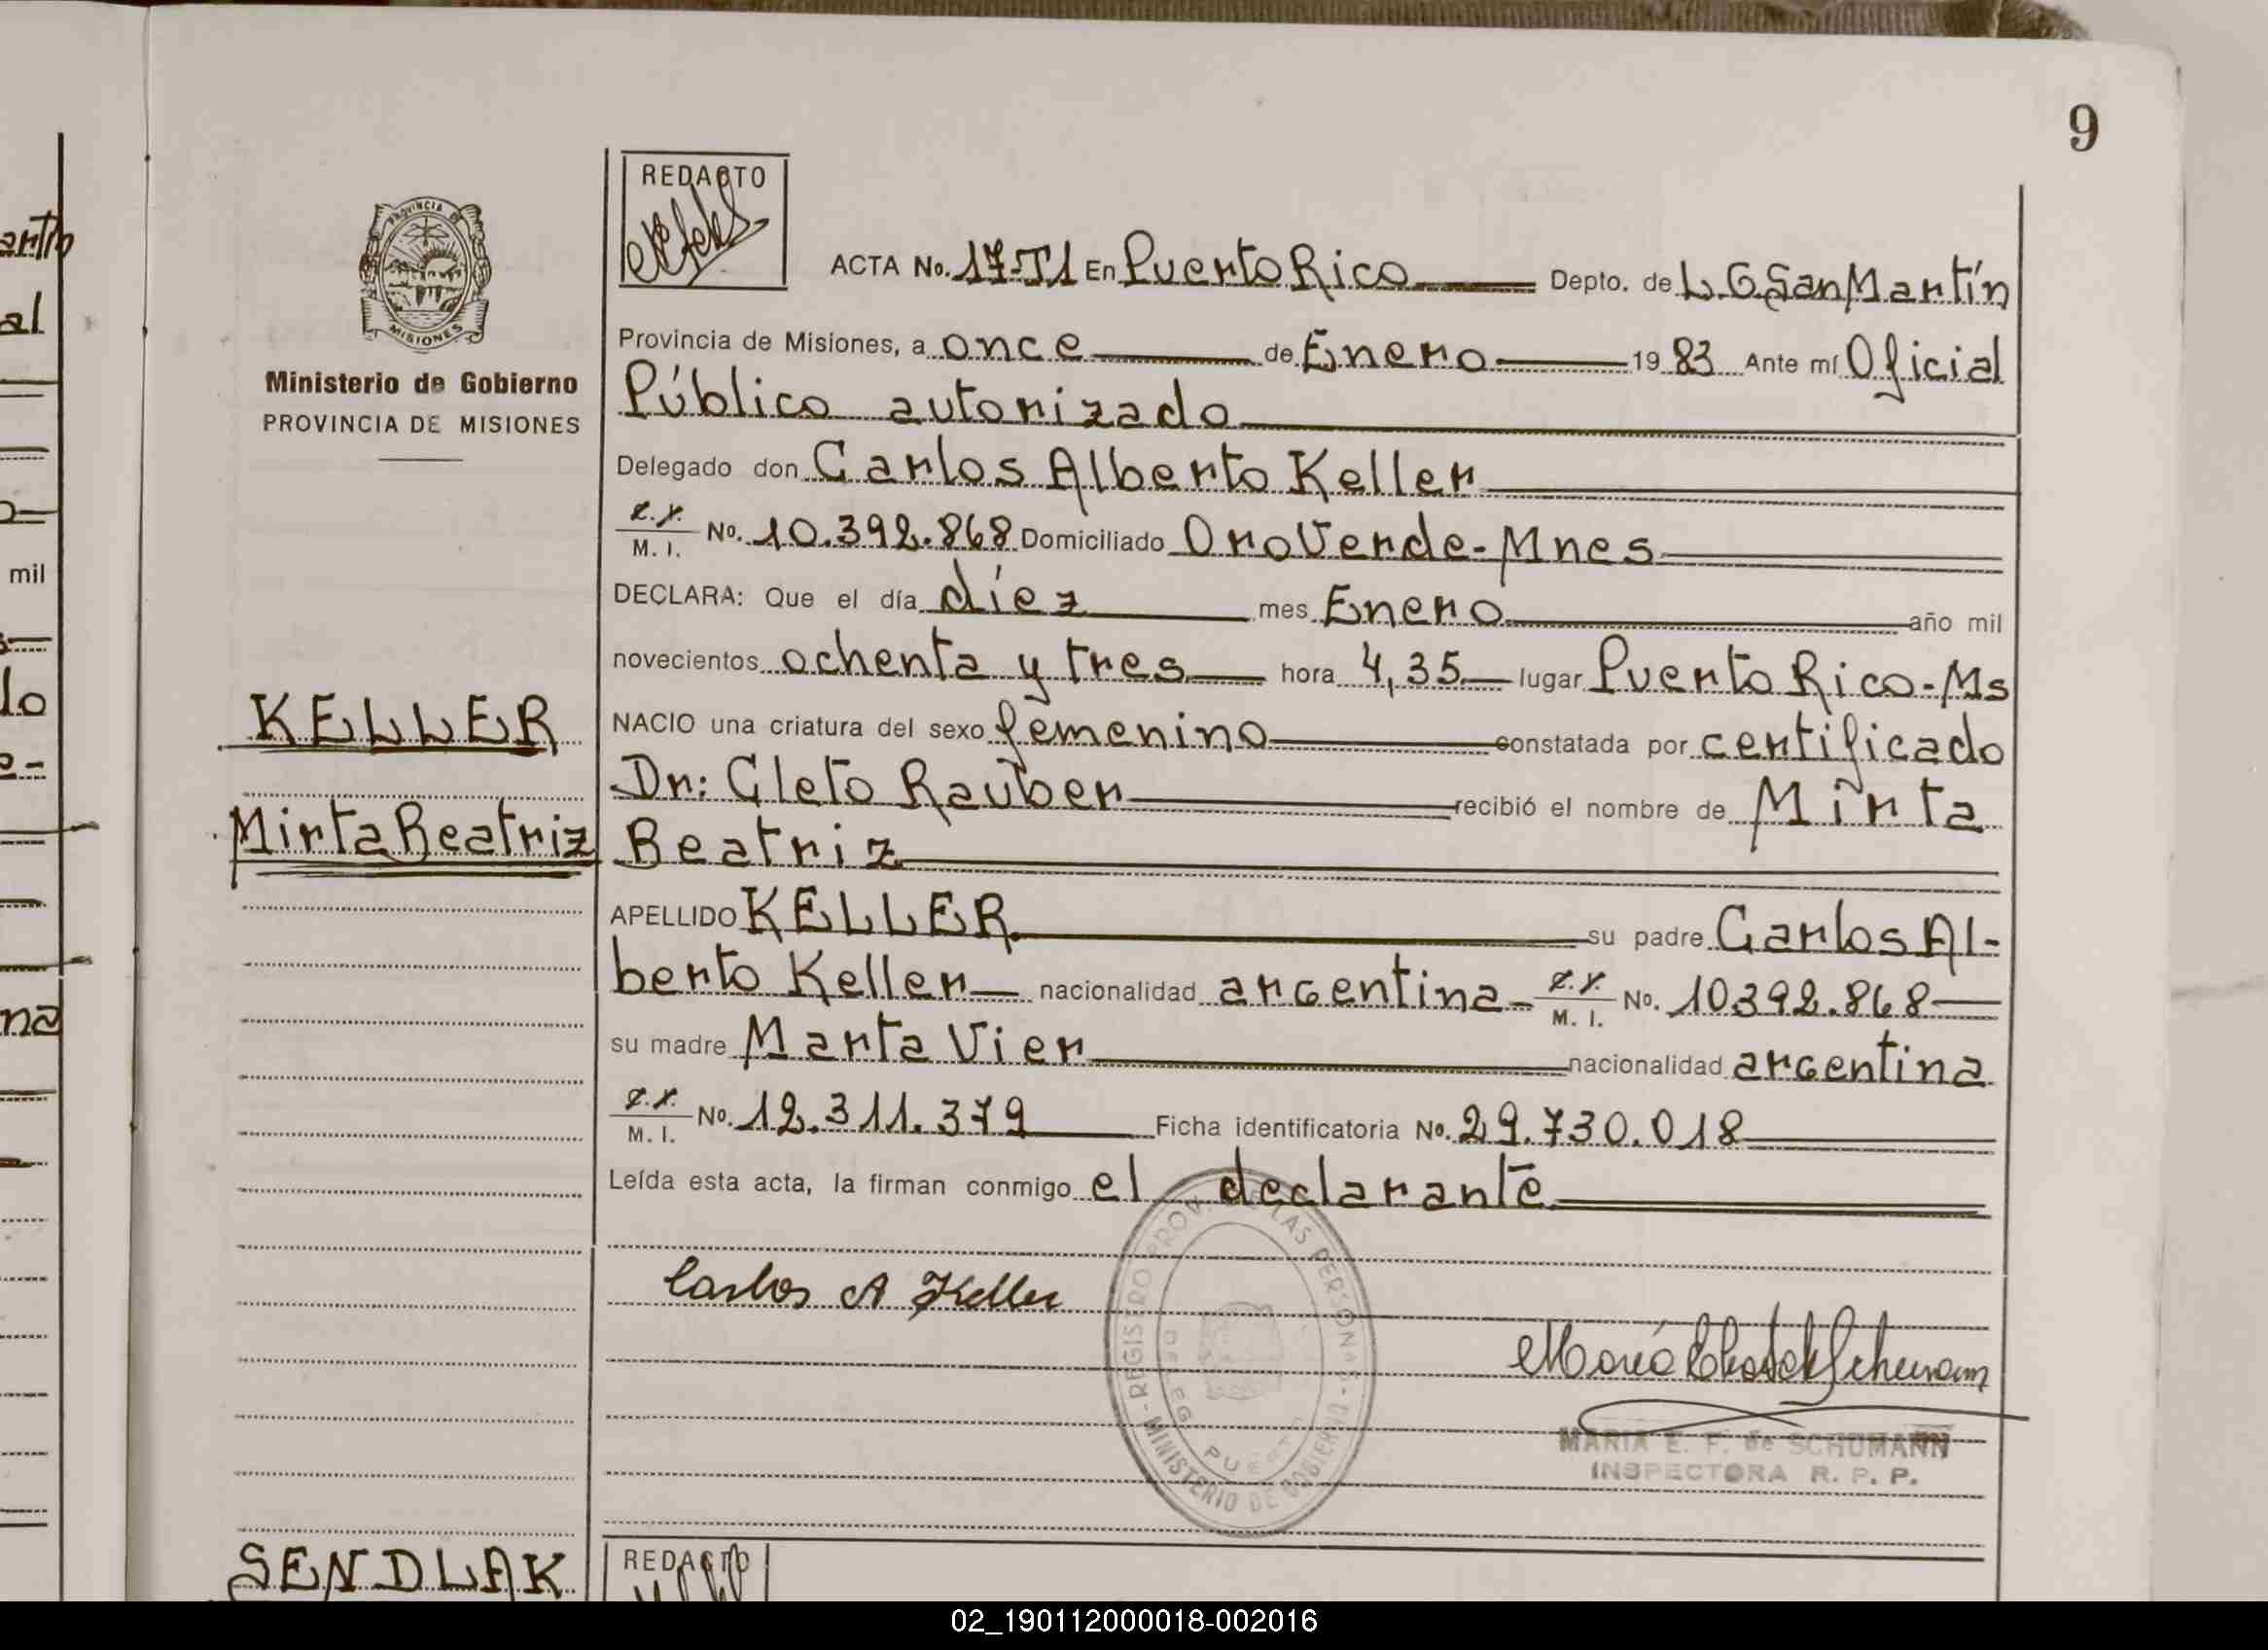 9
antín
al
mil
lo
na
PROVINCIA DE
MISIONES
Ministerio de Gobierno
PROVINCIA DE MISIONES
KELLER
Mirta Beatriz
REDACTO
ACTA No. 17-T1 En Puerto Rico Depto. de L. G. San Martín
Provincia de Misiones, a once de Enero 1983 Ante mí Oficial
Público autorizado
Delegado don Carlos Alberto Keller
M. I. No. 10.392.868 Domiciliado Oro Verde-Mnes
DECLARA: Que el día diez mes Enero año mil
novecientos ochenta y tres hora 4,35 lugar Puerto Rico-Ms
NACIO una criatura del sexo femenino constatada por certificado
Dr: Cleto Rauber recibió el nombre de Mirta
Beatriz
APELLIDO KELLER su padre Carlos Al-
berto Keller nacionalidad argentina- M. I. No. 10392.868
su madre Marta Vier nacionalidad argentina
M. I. No. 12.311.379 Ficha identificatoria No. 29.730.018
Leída esta acta, la firman conmigo el declarante
Carlos A Keller
REGISTRO PROV. DE LAS PERSONAS - MINISTERIO DE GOBIERNO -
DELEG PUERTO
MARIA E. F. de SCHUMANN
INSPECTORA R. P. P.
SENDLAK
REDACTO
02_190112000018-002016